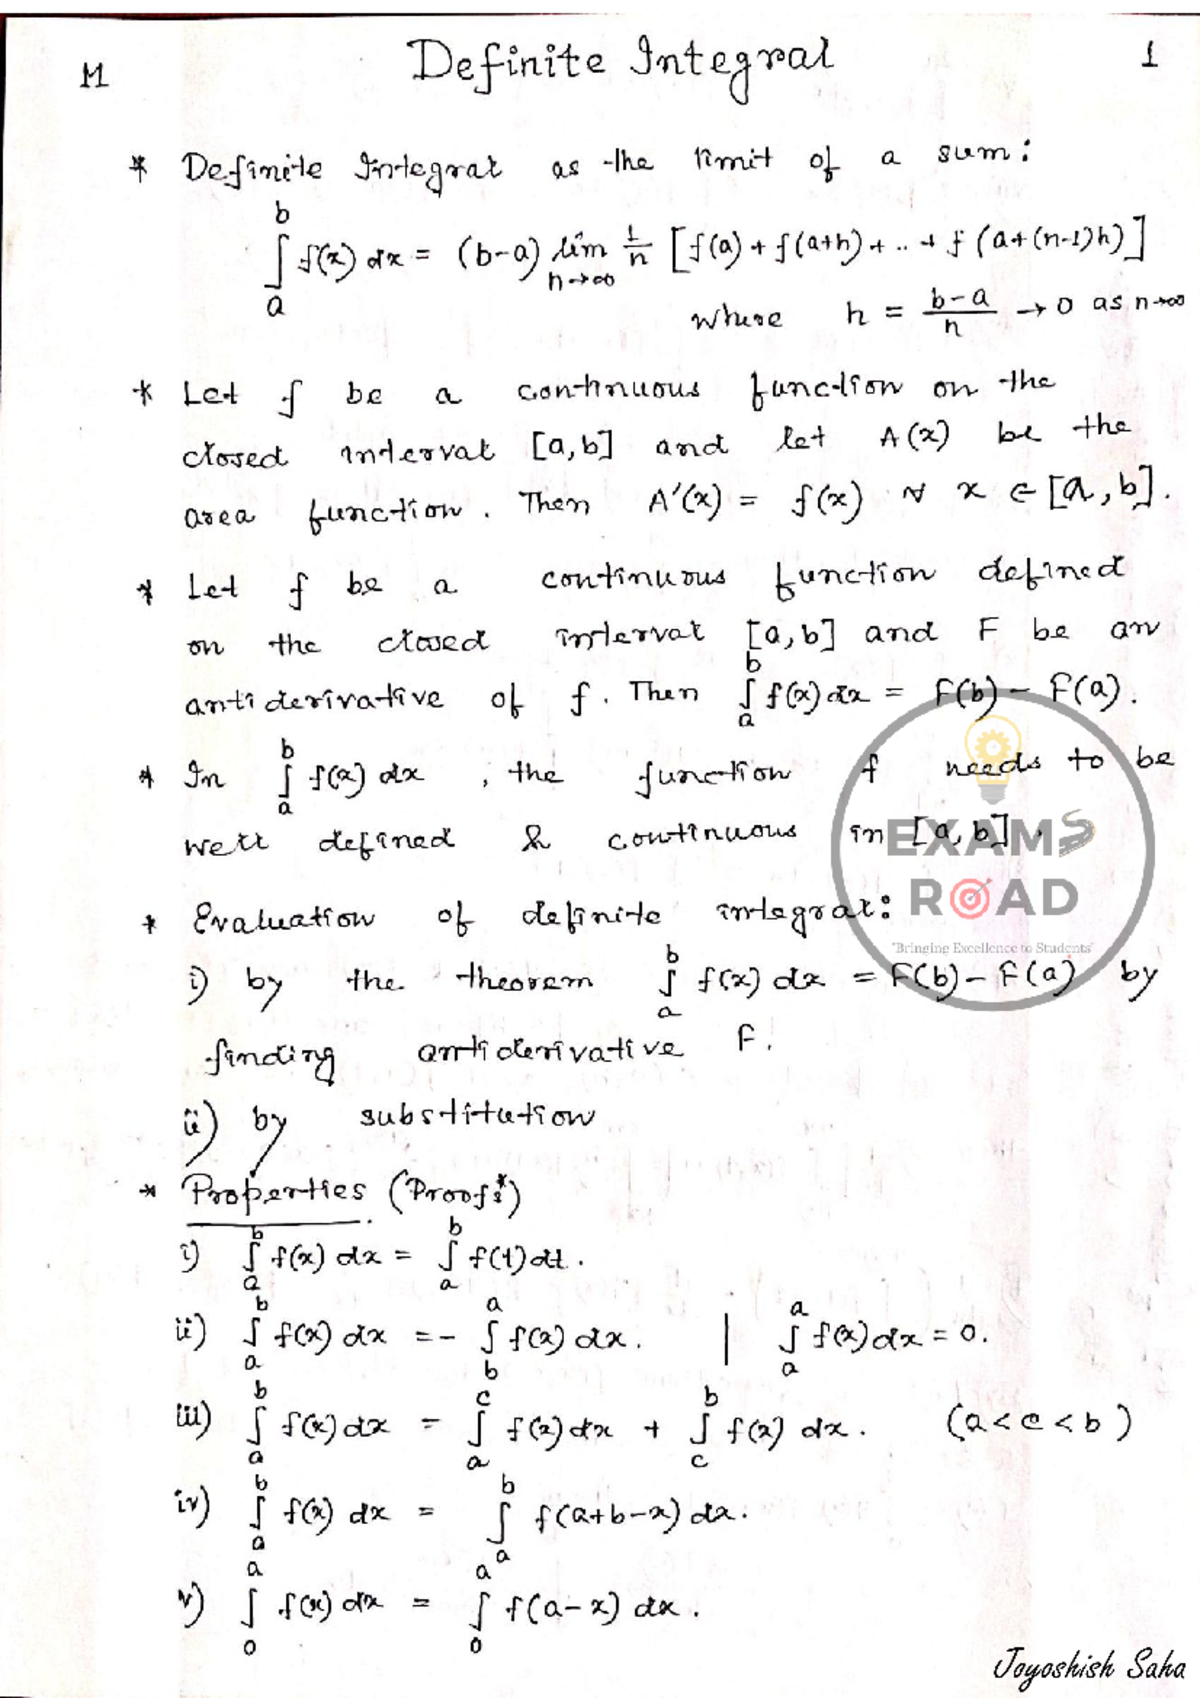 M
Definite Integral
1
* Definite Integral as the limit of a sum:
∫_a^b f(x) dx = (b-a) lim_{n→∞} 1/n [f(a) + f(a+h) + .. + f(a+(n-1)h)]
where h = (b-a)/n → 0 as n→∞
* Let f be a continuous function on the
closed interval [a,b] and let A(x) be the
area function. Then A'(x) = f(x) ∀ x ∈ [a,b].
* Let f be a continuous function defined
on the closed interval [a,b] and F be an
antiderivative of f. Then ∫_a^b f(x) dx = F(b) - F(a).
* In ∫_a^b f(x) dx, the function f needs to be
well defined & continuous in [a,b].
EXAMS
ROAD
"Bringing Excellence to Students"
* Evaluation of definite integral:
i) by the theorem ∫_a^b f(x) dx = F(b) - F(a) by
finding antiderivative F.
ii) by substitution
* Properties (Proofs*)
i) ∫_a^b f(x) dx = ∫_a^b f(t) dt.
ii) ∫_a^b f(x) dx = - ∫_b^a f(x) dx. | ∫_a^a f(x) dx = 0.
iii) ∫_a^b f(x) dx = ∫_a^c f(x) dx + ∫_c^b f(x) dx. (a<c<b)
iv) ∫_a^b f(x) dx = ∫_a^b f(a+b-x) dx.
v) ∫_0^a f(x) dx = ∫_0^a f(a-x) dx.
Joyoshish Saha